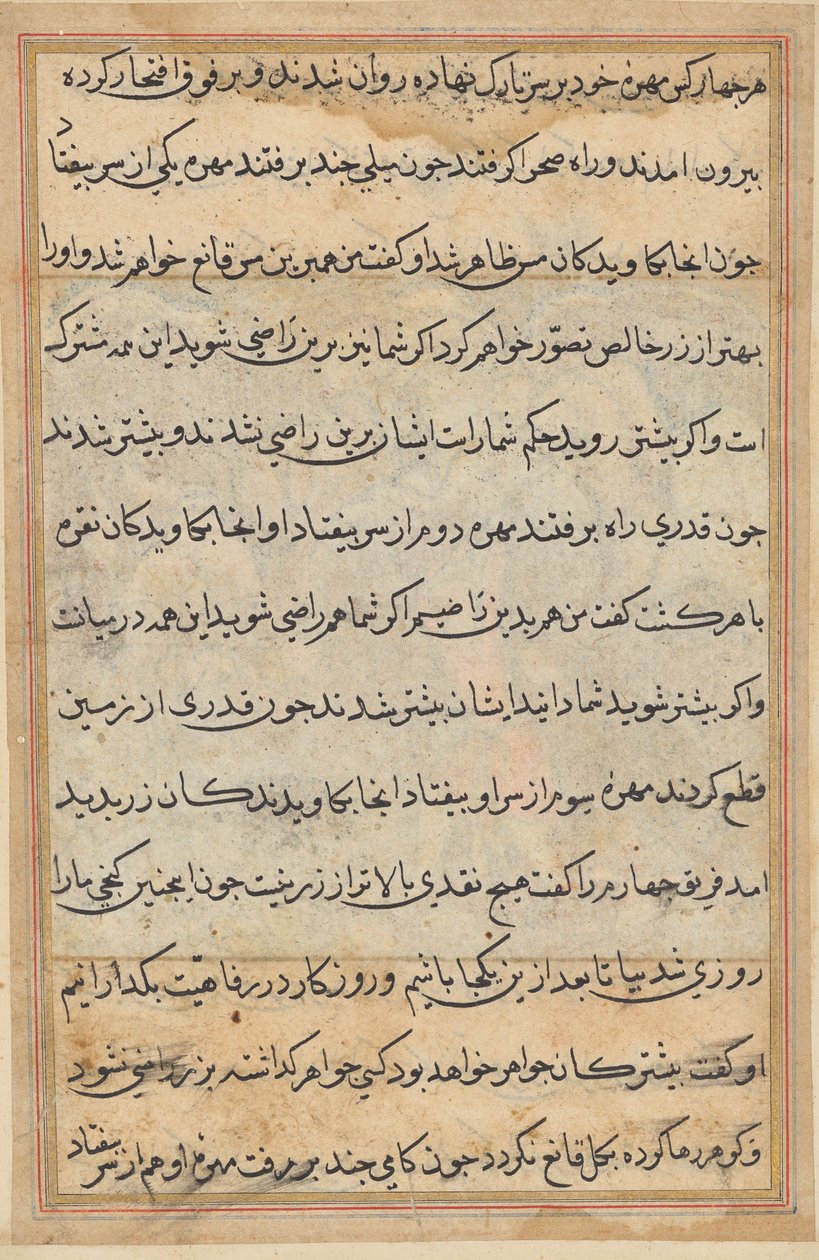 هر جهار کس مهرهٔ خود بر سر تارک نهاده روان شدند و بر فوق افتخار کرده
بیرون امدند و راه صحرا کرفتند جون میلی جند برفتند مهره یکی از سر بیفتاد
جون انجا بکاویدکان مس ظاهر شد او کفت من همبرین مس قانع خواهم شد و او را
بهتر از زر خالص تصوّر خواهم کرد اکر شما نیز برین رَاضي شوید این همه مشترک
است و اکر بیشتر روید حکم شما راست ایشان برین راضي نشدند و بیشتر شدند
جون قدري راه برفتند مهره دوم از سر بیفتاد او انجا بکاویدکان نقره
باهر کشت کفت من هم بدین رَاضیم اکر شما هم راضي شوید این همه در میانت
و اکر بیشتر شوید شما دانید ایشان بیشتر شدند جون قدری از زمین
قطع کردند مهرهٔ سوم از سر او بیفتاد انجا بکاویدند کان زر بدید
امد فریق جهارم را کفت هیج نقدي بالاتر از زر نیت جون ایجنین کنجي ما را
روزي شد بیا تا بعد ازین یکجا باشیم و روزکار در رفاهیّت بکدارانیم
او کفت بیشتر کان جواهر خواهد بود کسي جواهر کداشته بزر راضي نشود
وَ کوهر رها کرده بکل قانع نکردد جون کامي جند برفت مهرهٔ او هم از سر بیفتاد